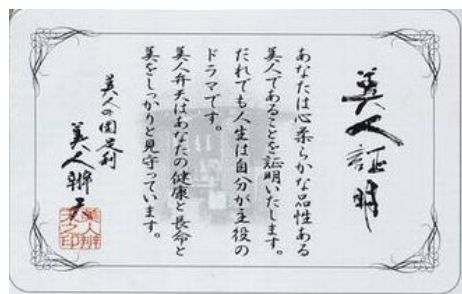 美人証明
あなたは心柔らかな品性ある
美人であることを証明いたします。
だれでも人生は自分が主役の
ドラマです。
美人弁天はあなたの健康と長命と
美をしっかりと見守っています。
美人の国足利
美人辨天
美人辨
天之印